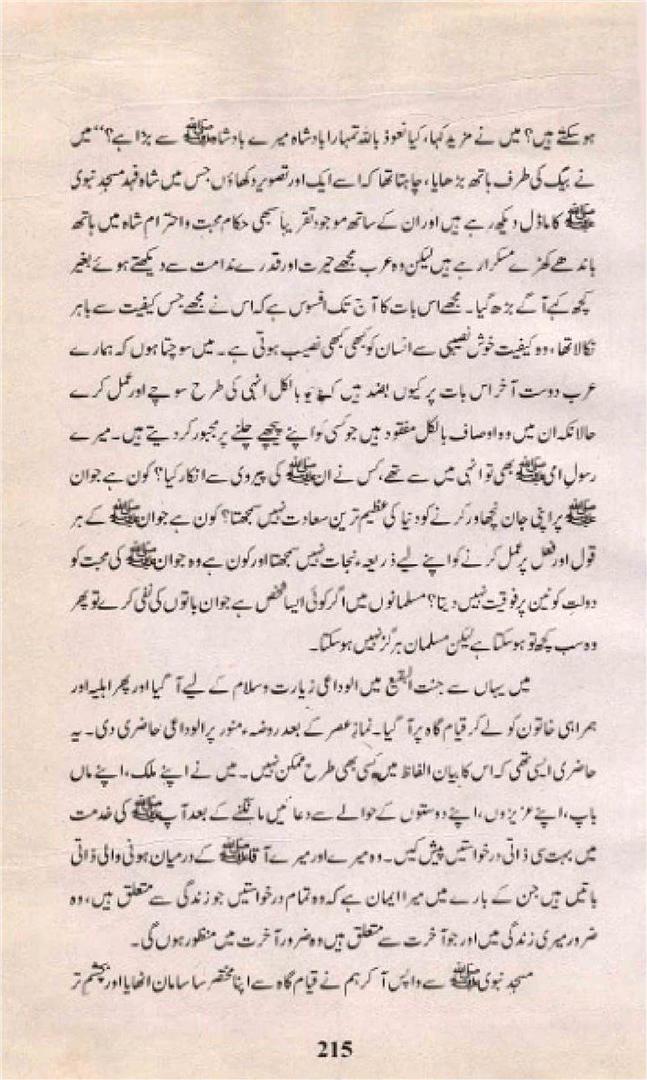 ہو سکتے ہیں؟ میں نے مزید کہا، کیا نعوذ باللہ تمہارا بادشاہ میرے بادشاہ ﷺ سے بڑا ہے؟“ میں
نے بیگ کی طرف ہاتھ بڑھایا، چاہتا تھا کہ اسے ایک اور تصویر دکھاؤں جس میں شاہ فہد مسجد نبوی
ﷺ کا ماڈل دیکھ رہے ہیں اور ان کے ساتھ موجود تقریباً سبھی حکام محبت و احترام شاہ میں ہاتھ
باندھے کھڑے مسکرا رہے ہیں لیکن وہ عرب مجھے حیرت اور قدرے ندامت سے دیکھتے ہوئے بغیر
کچھ کہے آگے بڑھ گیا۔ مجھے اس بات کا آج تک افسوس ہے کہ اس نے مجھے جس کیفیت سے باہر
نکالا تھا، وہ کیفیت خوش نصیبی سے انسان کو کبھی کبھی نصیب ہوتی ہے۔ میں سوچتا ہوں کہ ہمارے
عرب دوست آخر اس بات پر کیوں بضد ہیں کہ بالکل انہی کی طرح سوچے اور عمل کرے
حالانکہ ان میں وہ اوصاف بالکل مفقود ہیں جو کسی کو اپنے پیچھے چلنے پر مجبور کر دیتے ہیں۔ میرے
رسول امی ﷺ بھی تو انہی میں سے تھے، کس نے ان ﷺ کی پیروی سے انکار کیا؟ کون ہے جو ان
ﷺ پر اپنی جان نچھاور کرنے کو دنیا کی عظیم ترین سعادت نہیں سمجھتا؟ کون ہے جو ان ﷺ کے ہر
قول اور فعل پر عمل کرنے کو اپنے لیے ذریعہء نجات نہیں سمجھتا اور کون ہے وہ جو ان ﷺ کی محبت کو
دولتِ کونین پر فوقیت نہیں دیتا؟ مسلمانوں میں اگر کوئی ایسا شخص ہے جو ان باتوں کی نفی کرے تو پھر
وہ سب کچھ تو ہو سکتا ہے لیکن مسلمان ہرگز نہیں ہو سکتا۔
میں یہاں سے جنت البقیع میں الوداعی زیارت و سلام کے لیے آ گیا اور پھر اہلیہ اور
ہمراہی خاتون کو لے کر قیام گاہ پر آ گیا۔ نمازِ عصر کے بعد روضہء منور پر الوداعی حاضری دی۔ یہ
حاضری ایسی تھی کہ اس کا بیان الفاظ میں کسی بھی طرح ممکن نہیں۔ میں نے اپنے ملک، اپنے ماں
باپ، اپنے عزیزوں، اپنے دوستوں کے حوالے سے دعائیں مانگنے کے بعد آپ ﷺ کی خدمت
میں بہت سی ذاتی درخواستیں پیش کیں۔ وہ میرے اور میرے آقا ﷺ کے درمیان ہونی والی ذاتی
باتیں ہیں جن کے بارے میں میرا ایمان ہے کہ وہ تمام درخواستیں جو زندگی سے متعلق ہیں، وہ
ضرور میری زندگی میں اور جو آخرت سے متعلق ہیں وہ ضرور آخرت میں منظور ہوں گی۔
مسجد نبوی ﷺ سے واپس آ کر ہم نے قیام گاہ سے اپنا مختصر سا سامان اٹھایا اور بچشم تر
215